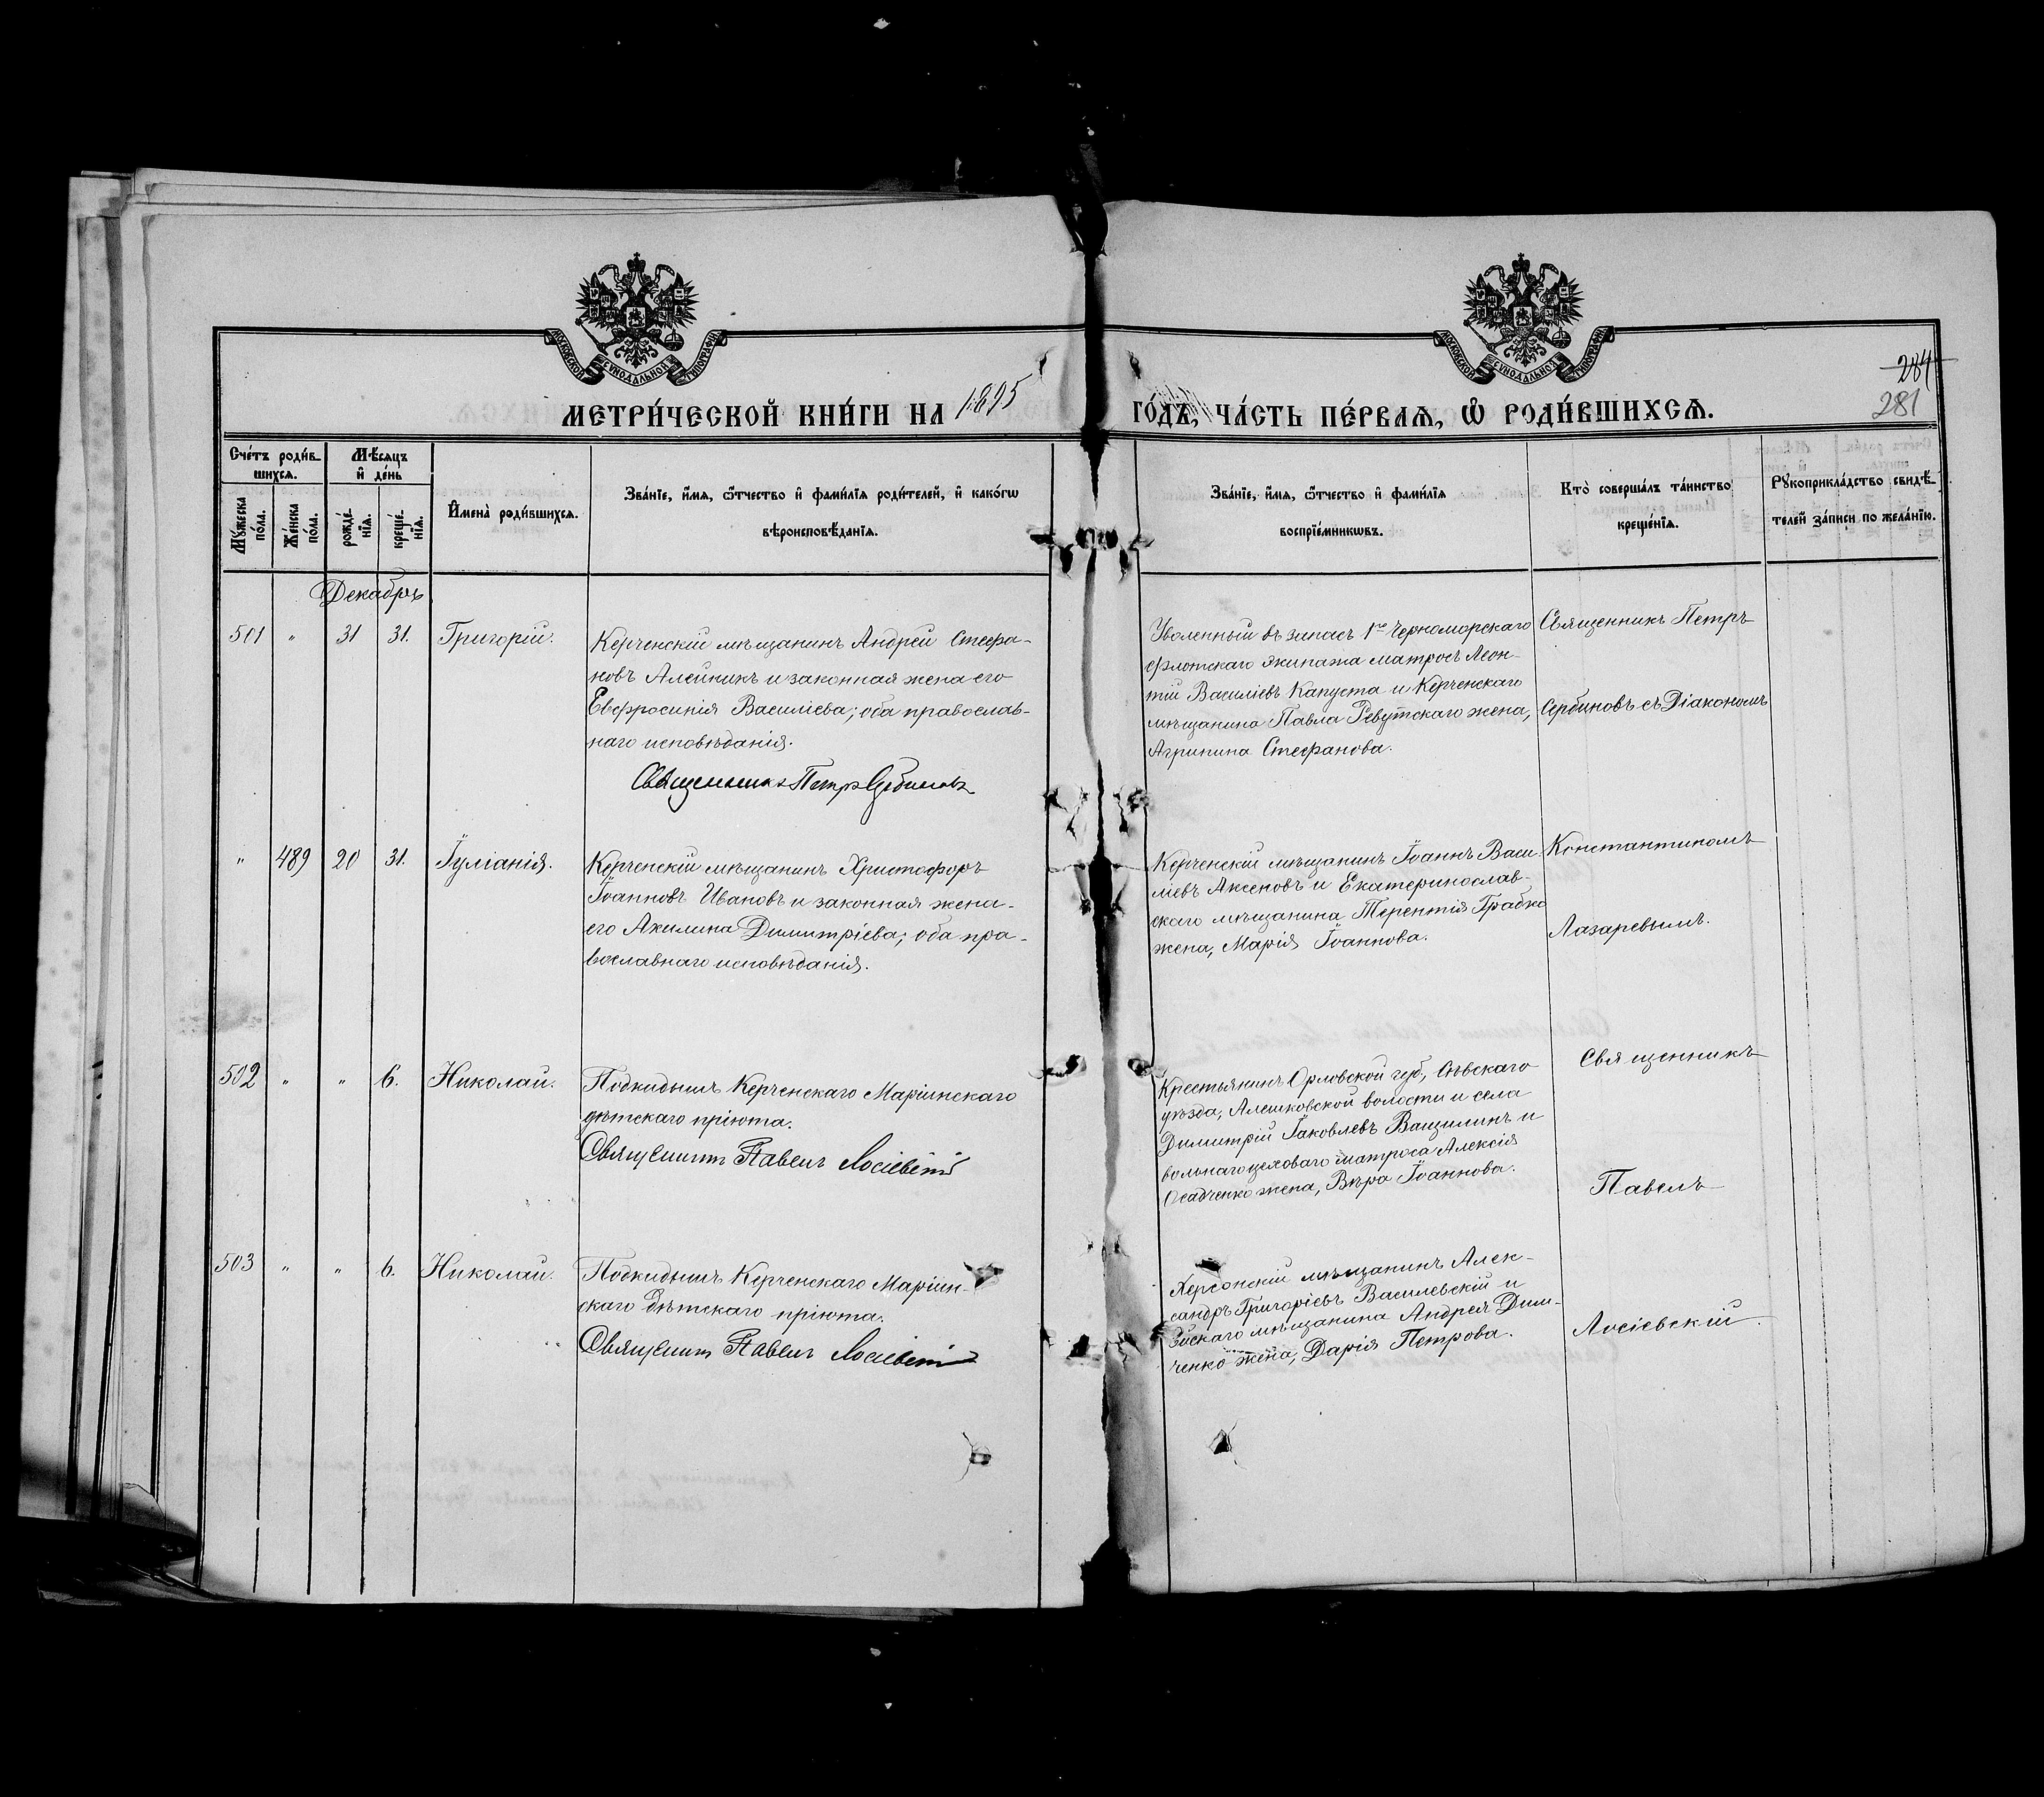 МОСКОВСКОЙ СѴНОДАЛЬНОЙ ТИПОГРАФІИ
МОСКОВСКОЙ СѴНОДАЛЬНОЙ ТИПОГРАФІИ
284
281
МЕТРИ́ЧЕСКОЙ КНИ́ГИ НА 1895 ГО́ДЪ, ЧА́СТЬ ПЕ́РВАѦ, Ѡ҆ РОДИ́ВШИХСѦ.
Сче́тъ роди́в-
шихсѧ.
Мꙋ́жеска по́ла.
Же́нска по́ла.
Мѣ́сѧцъ
и҆ де́нь
рожде́-нїѧ.
креще́-нїѧ.
И҆мена̀ роди́вшихсѧ.
Зва́нїе, и҆́мѧ, ѻ҆́тчество и҆ фами́лїѧ роди́телей, и҆ како́гѡ
вѣроисповѣ́данїѧ.
Зва́нїе, и҆́мѧ, ѻ҆́тчество и҆ фами́лїѧ
воспрїе́мникѡвъ.
Кто̀ соверша́лъ та́инство
креще́нїѧ.
Рꙋкоприкла́дство свидѣ́-
телей за́писи по жела́нїю.
Декабрь
501 " 31 31. Григорій.
Керченскій мѣщанинъ Андрей Стефа-
новъ Алейникъ и законная жена его
Евфросинія Василіева; оба православ-
наго исповѣданія.
Священникъ Петръ Сербиновъ
Уволенный въ запасъ 1го Черноморскаго
флотскаго экипажа матросъ Леон-
тій Василіевъ Капуста и Керченскаго
мѣщанина Павла Ревутскаго жена,
Агрипина Стефанова.
Священникъ Петръ
Сербиновъ съ Діакономъ
" 489 20 31. Іуліанія.
Керченскій мѣщанинъ Христофоръ
Іоанновъ Ивановъ и законная жена
его Акилина Димитріева; оба пра-
вославнаго исповѣданія.
Керченскій мѣщанинъ Іоаннъ Васи-
ліевъ Аксеновъ и Екатеринослав-
скаго мѣщанина Терентія Грабко
жена, Марія Іоаннова.
Константиномъ
Лазаревымъ.
502 " " 6. Николай.
Подкидышъ Керченскаго Маріинскаго
дѣтскаго пріюта.
Священникъ Павелъ Лосіевскій
Крестьянинъ Орловской губ., Сѣвскаго
уѣзда, Алешковской волости и села
Димитрій Іаковлевъ Ващилинъ и
вольнаго цеховаго матроса Алексія
Осадченко жена, Вѣра Іоаннова.
Священникъ
Павелъ
503 " " 6. Николай.
Подкидышъ Керченскаго Маріин-
скаго дѣтскаго пріюта.
Священникъ Павелъ Лосіевскій
Херсонскій мѣщанинъ Алек-
сандръ Григоріевъ Василевскій и
мѣщанина Андрея Дим-
ченко жена, Дарія Петрова.
Лосіевскій.